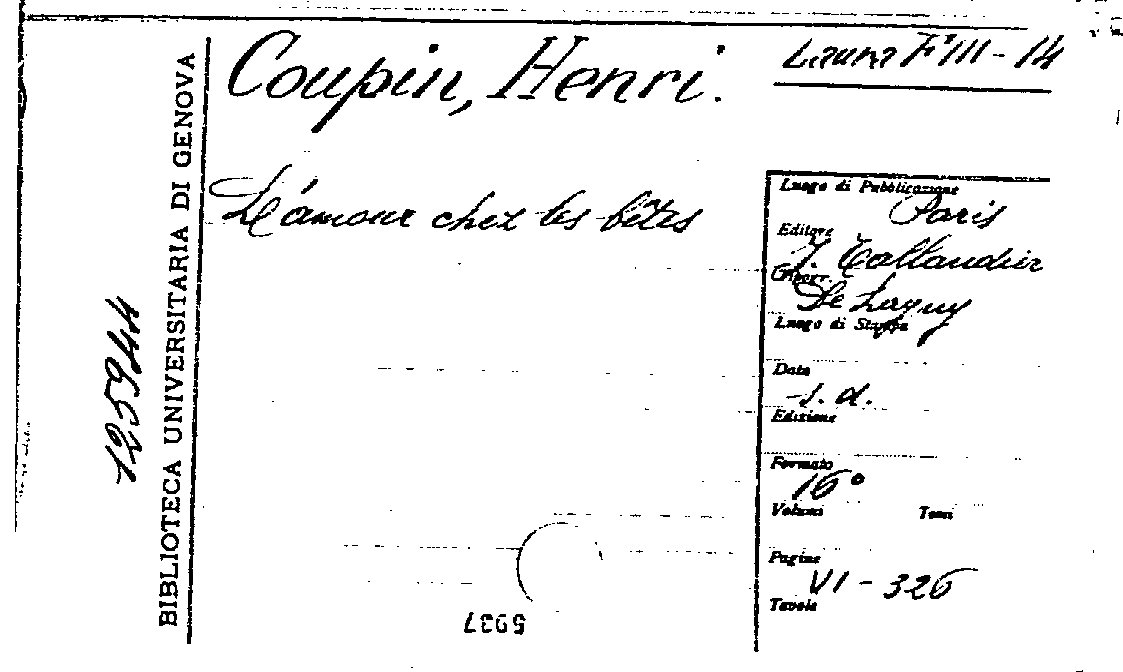 Coupin, Henri.
Laura F III - 14
L'amour chez les bêtes
Luogo di Pubblicazione
Paris
Editore
J. Tallandier
De Lagny
Luogo di Stampa
Data
s. d.
Edizione
Formato
16°
Volumi Tomi
Pagine
VI - 326
Tavole
BIBLIOTECA UNIVERSITARIA DI GENOVA
125944
5937